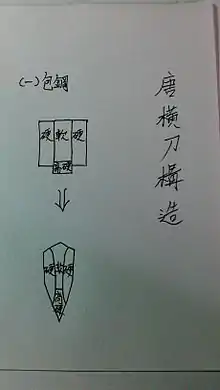 唐橫刀構造
(一)包鋼
硬 軟 硬
高硬
硬 軟 硬
高硬